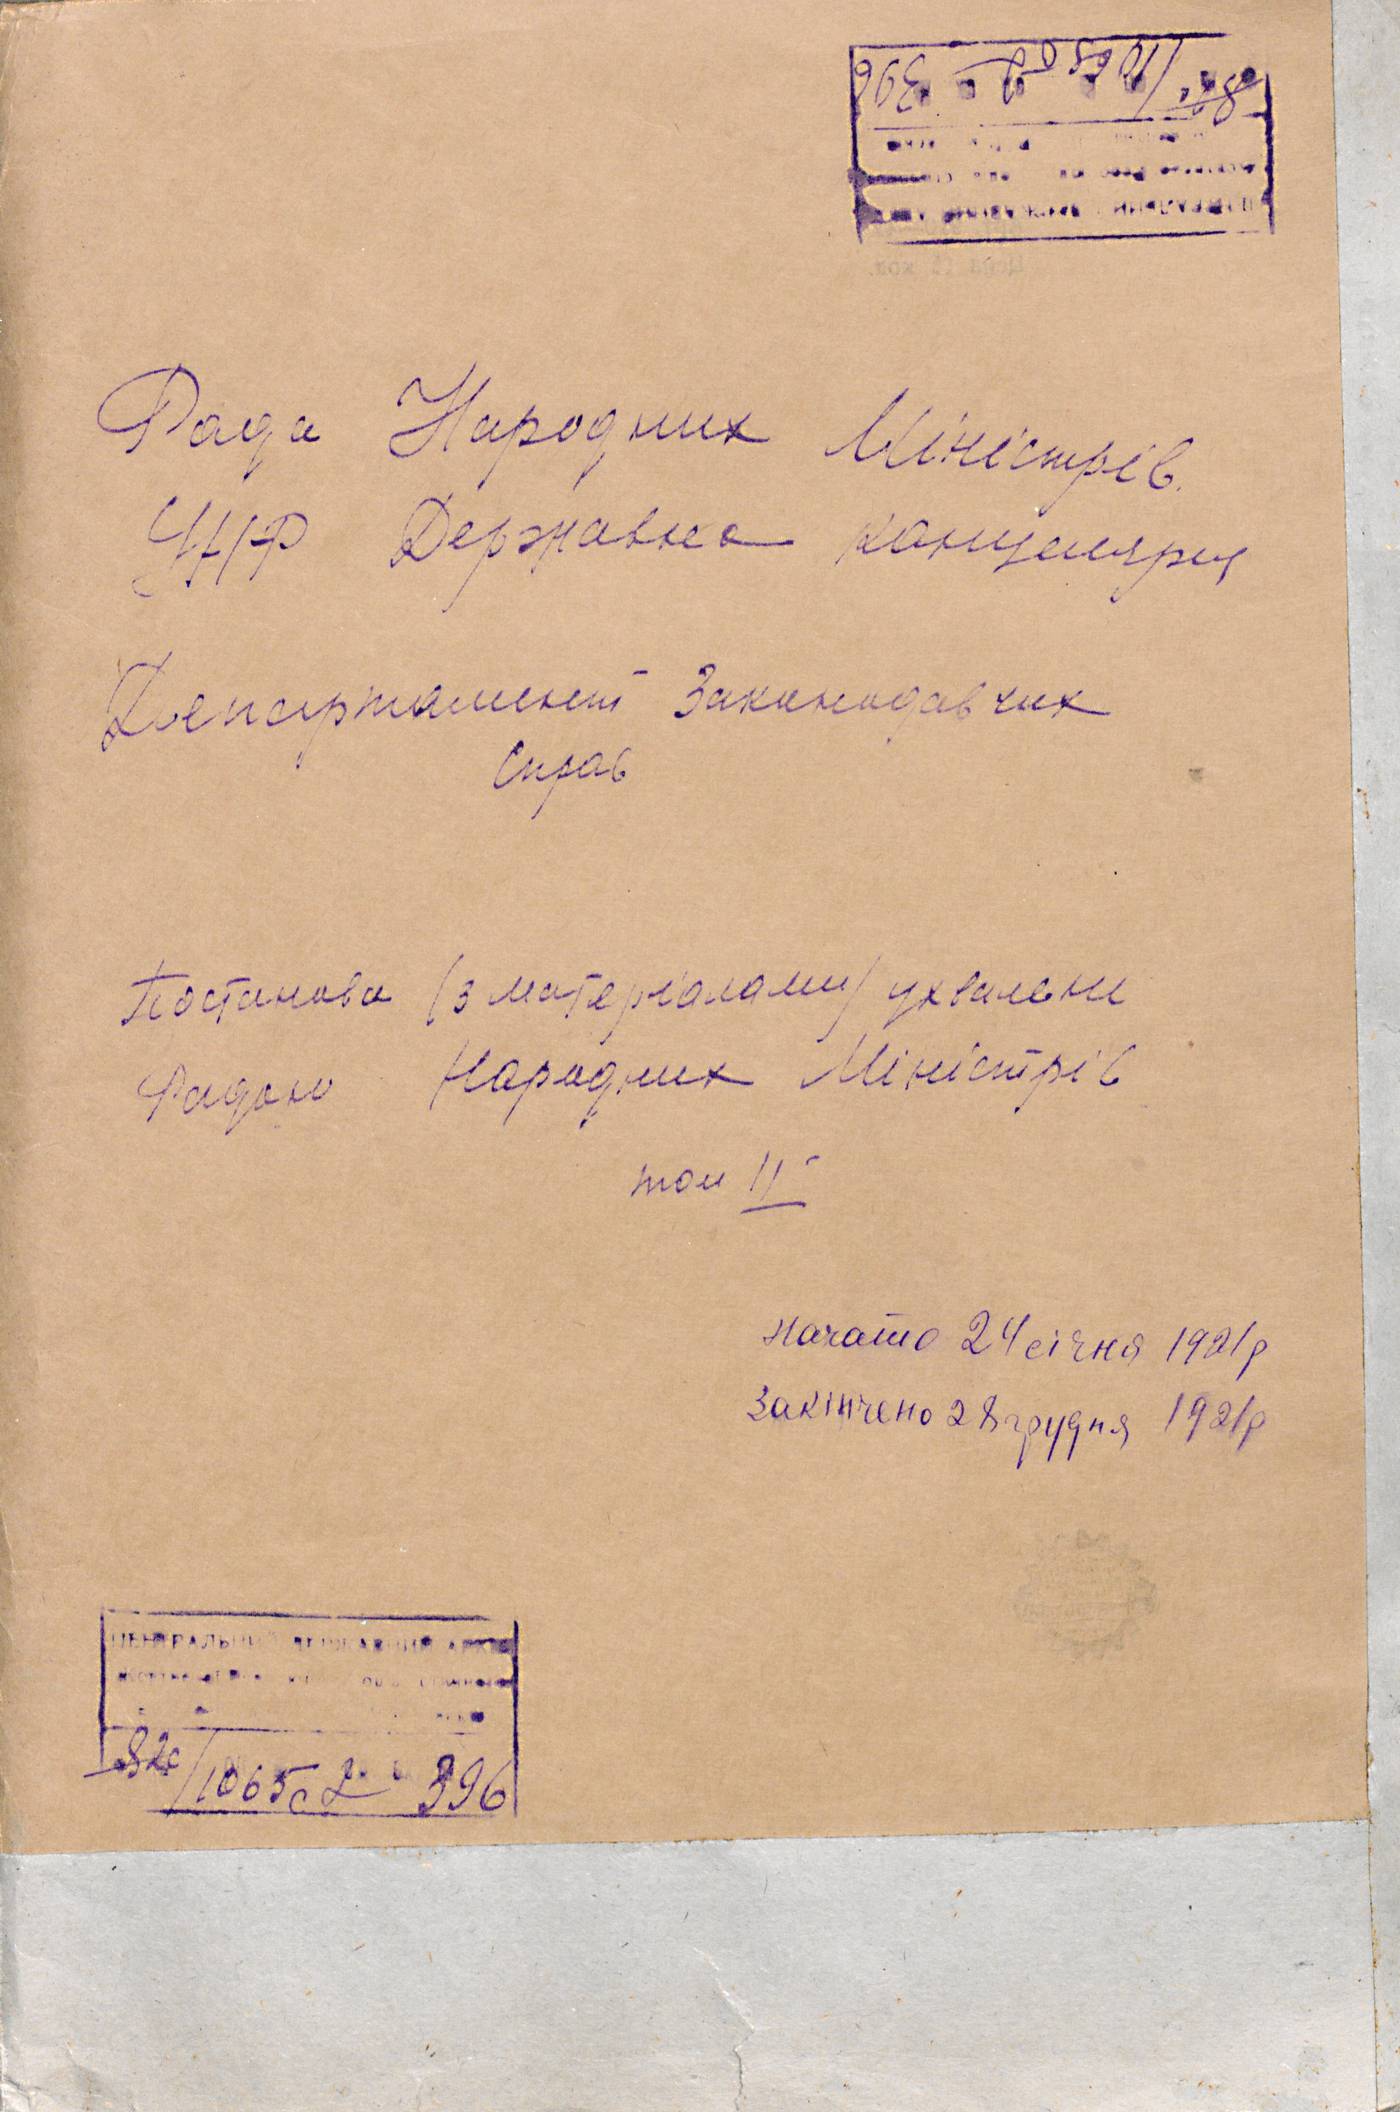 Рада Народних Міністрів
УНР Державна канцелярия
Департамент Законодавчих
Справ
Постанова (з матеріалами) ухвалени
Радою Народних Міністрів
том II
Начато 24 січня 1921 р
Закінчено 28 грудня 1921 р
ЦЕНТРАЛЬНИЙ ДЕРЖАВНИЙ АРХІВ
1065 с 2 396